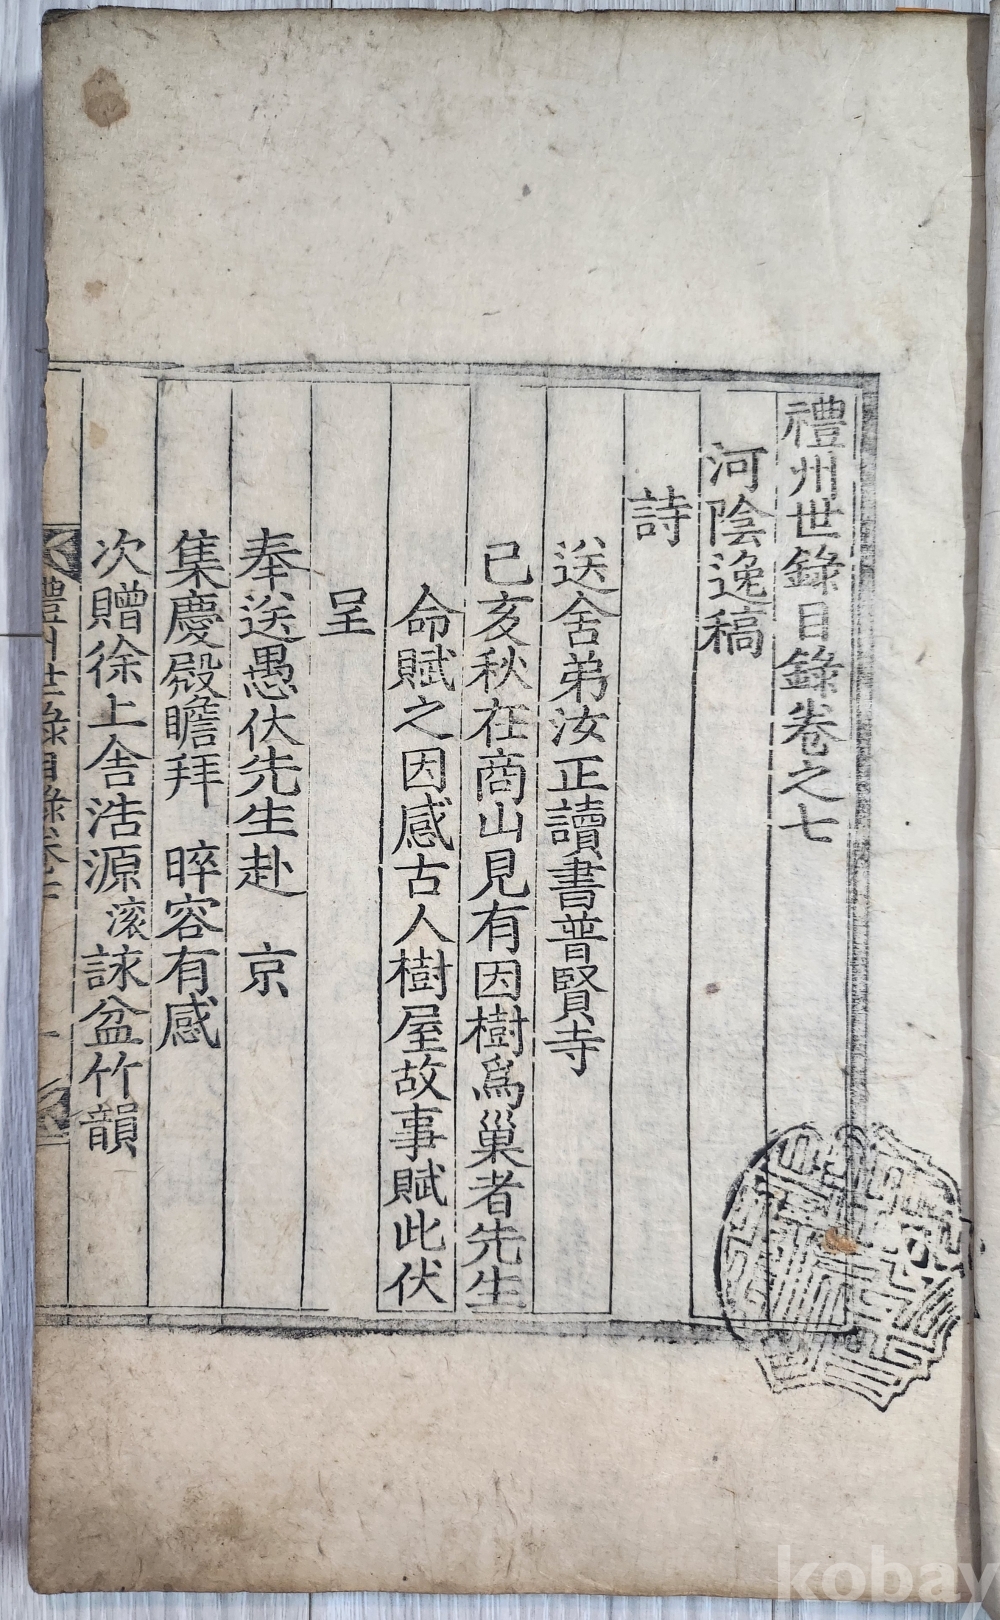 禮州世錄目錄卷之七
河陰逸稿
詩
送舍弟汝正讀書普賢寺
己亥秋在商山見有因樹爲巢者先生
命賦之因感古人樹屋故事賦此伏
呈
奉送愚伏先生赴 京
集慶殿瞻拜 晬容有感
次贈徐上舍浩源滚詠盆竹韻
禮州世錄目錄卷七 一
kobay